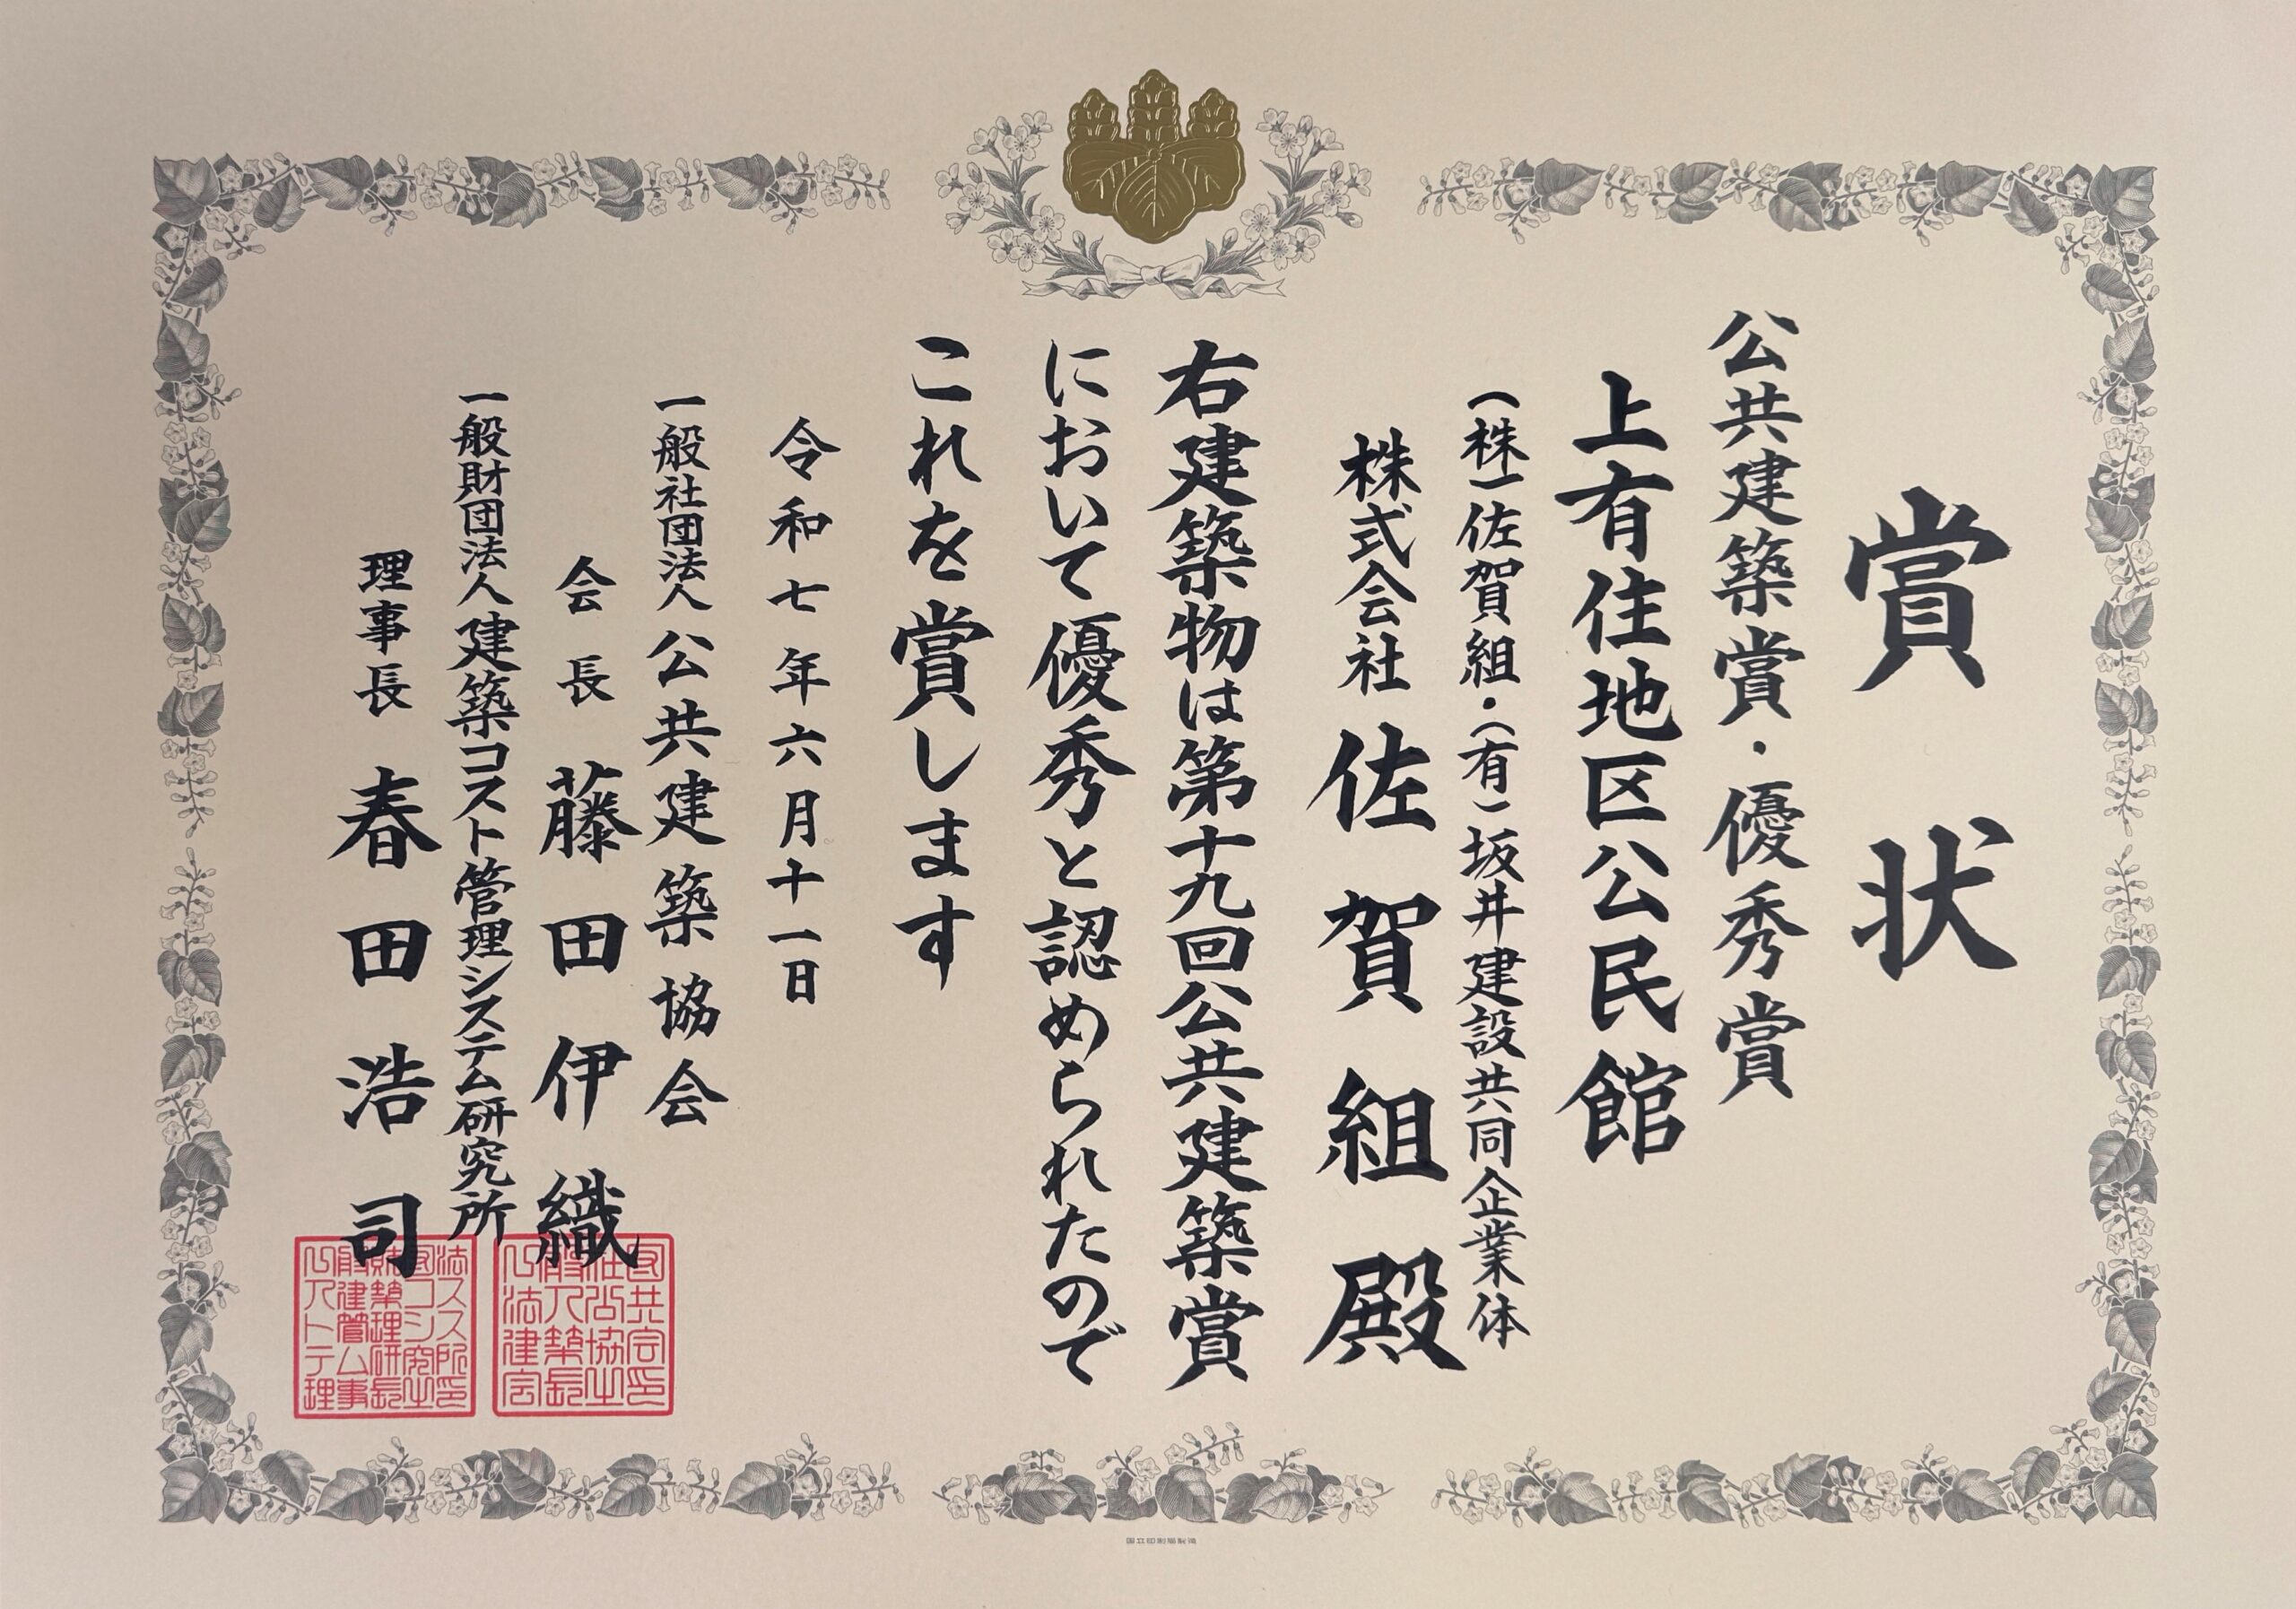 賞状
公共建築賞・優秀賞
上有住地区公民館
（株）佐賀組・（有）坂井建設共同企業体
株式会社 佐賀組殿
右建築物は第十九回公共建築賞
において優秀と認められたので
これを賞します
令和七年六月十一日
一般社団法人 公共建築協会
会長 藤田伊織
一般財団法人 建築コスト管理システム研究所
理事長 春田浩司
国立印刷局製造